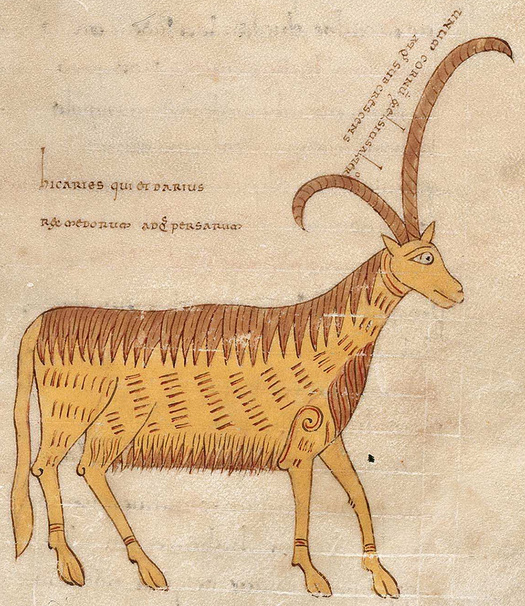 hic aries qui et darius
rex medorum adq̄ persarum
unum cornū excelsius altero
adq̄ subcrescens